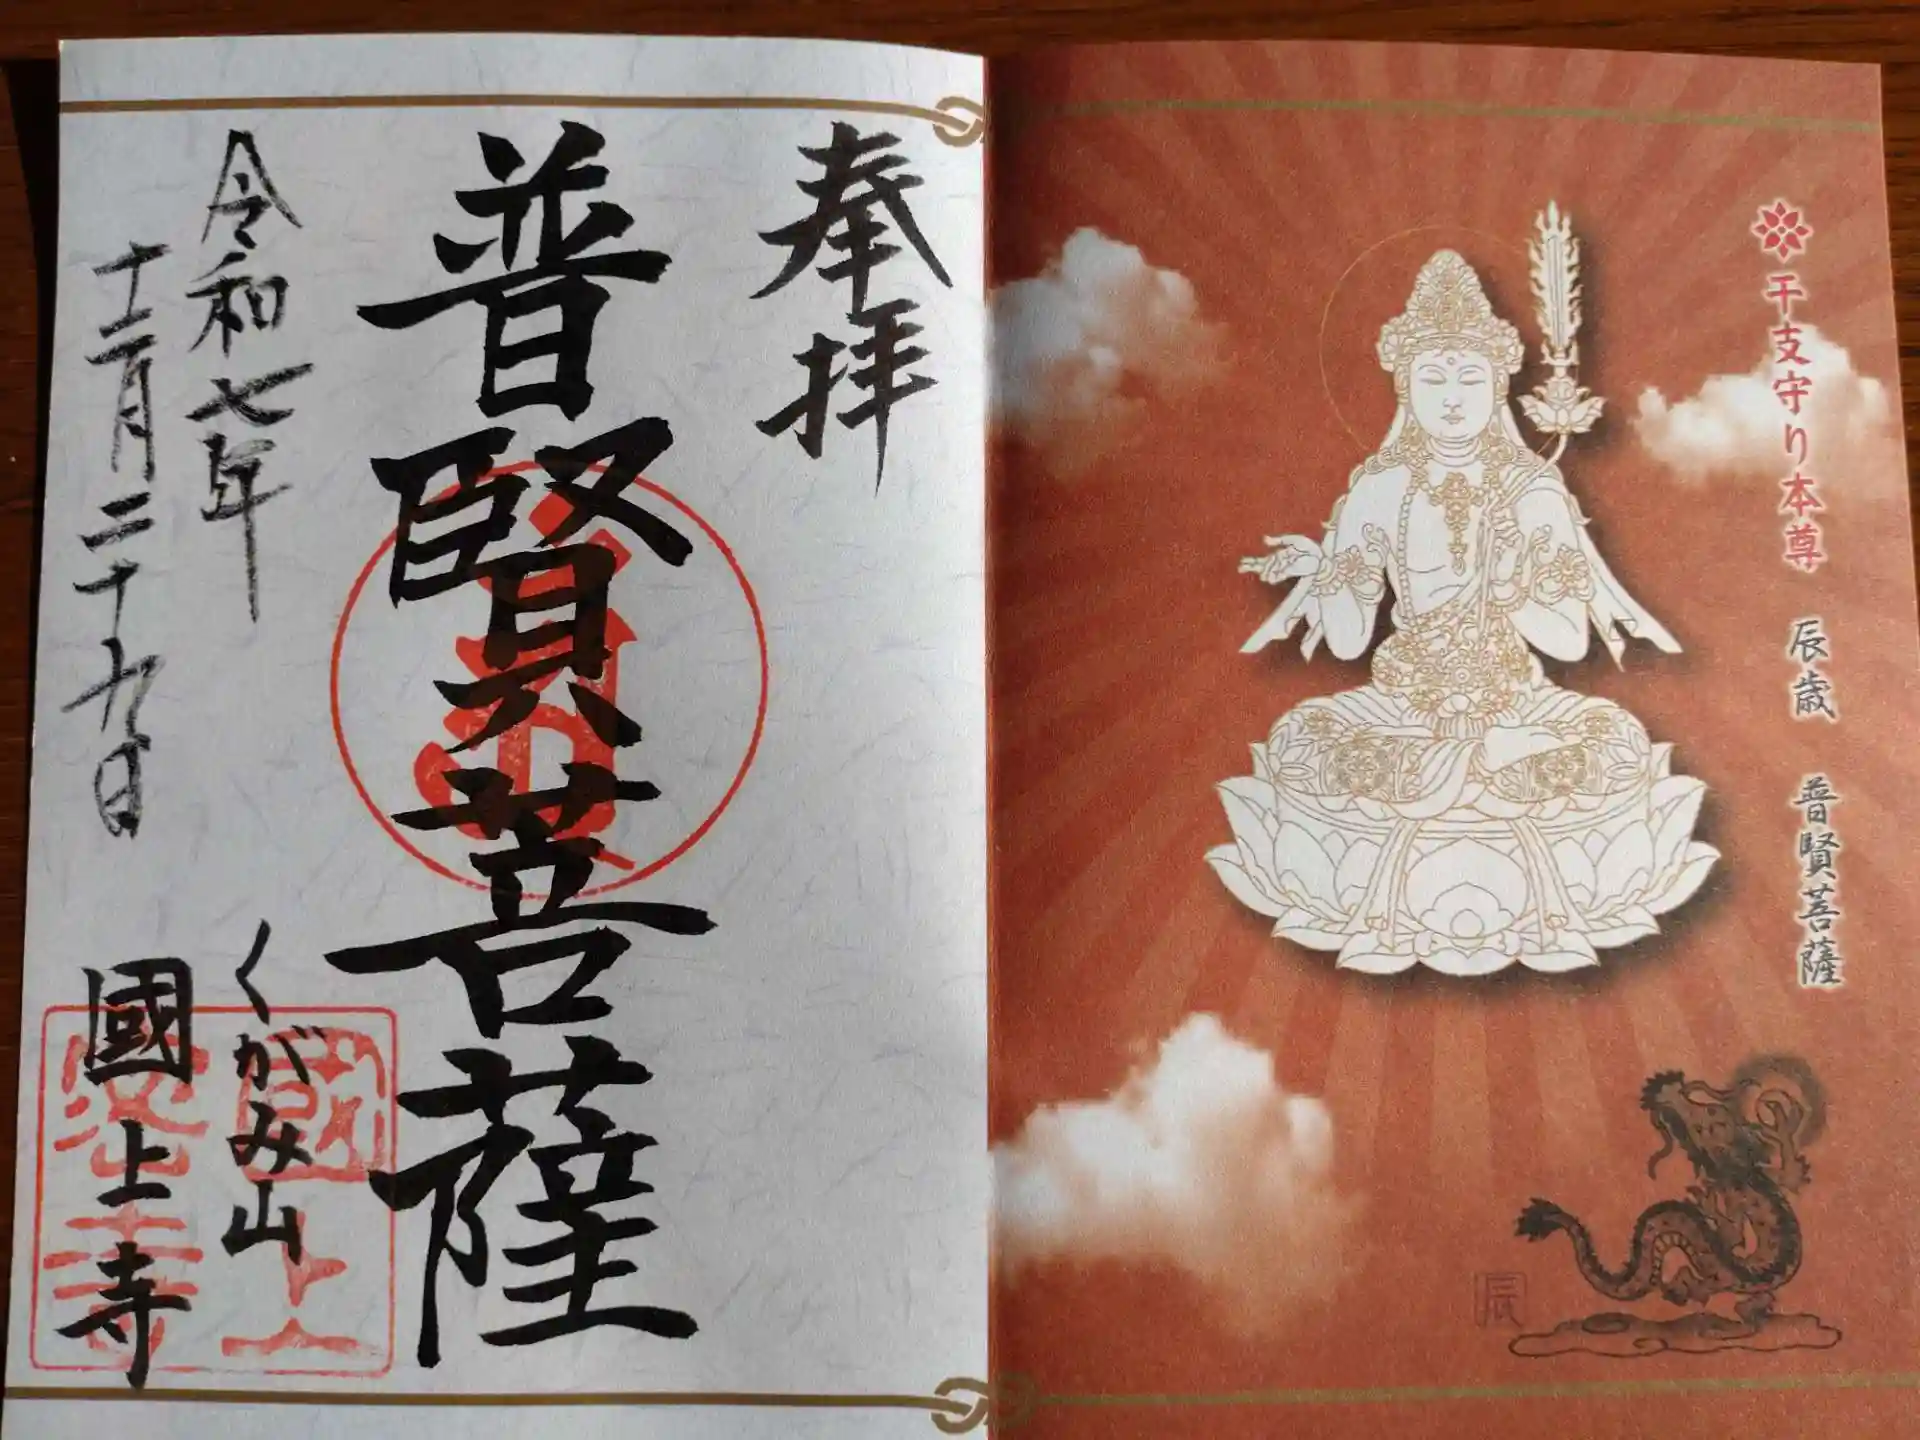 干支守り本尊 辰歳 普賢菩薩
辰
奉拝
普賢菩薩
令和七年
十二月二十九日
くがみ山
國上寺
國上